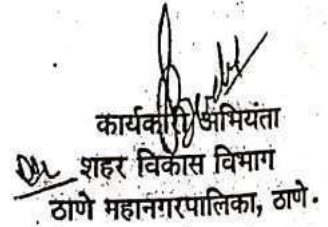 कार्यकारी अभियंता
शहर विकास विभाग
ठाणे महानगरपालिका, ठाणे.